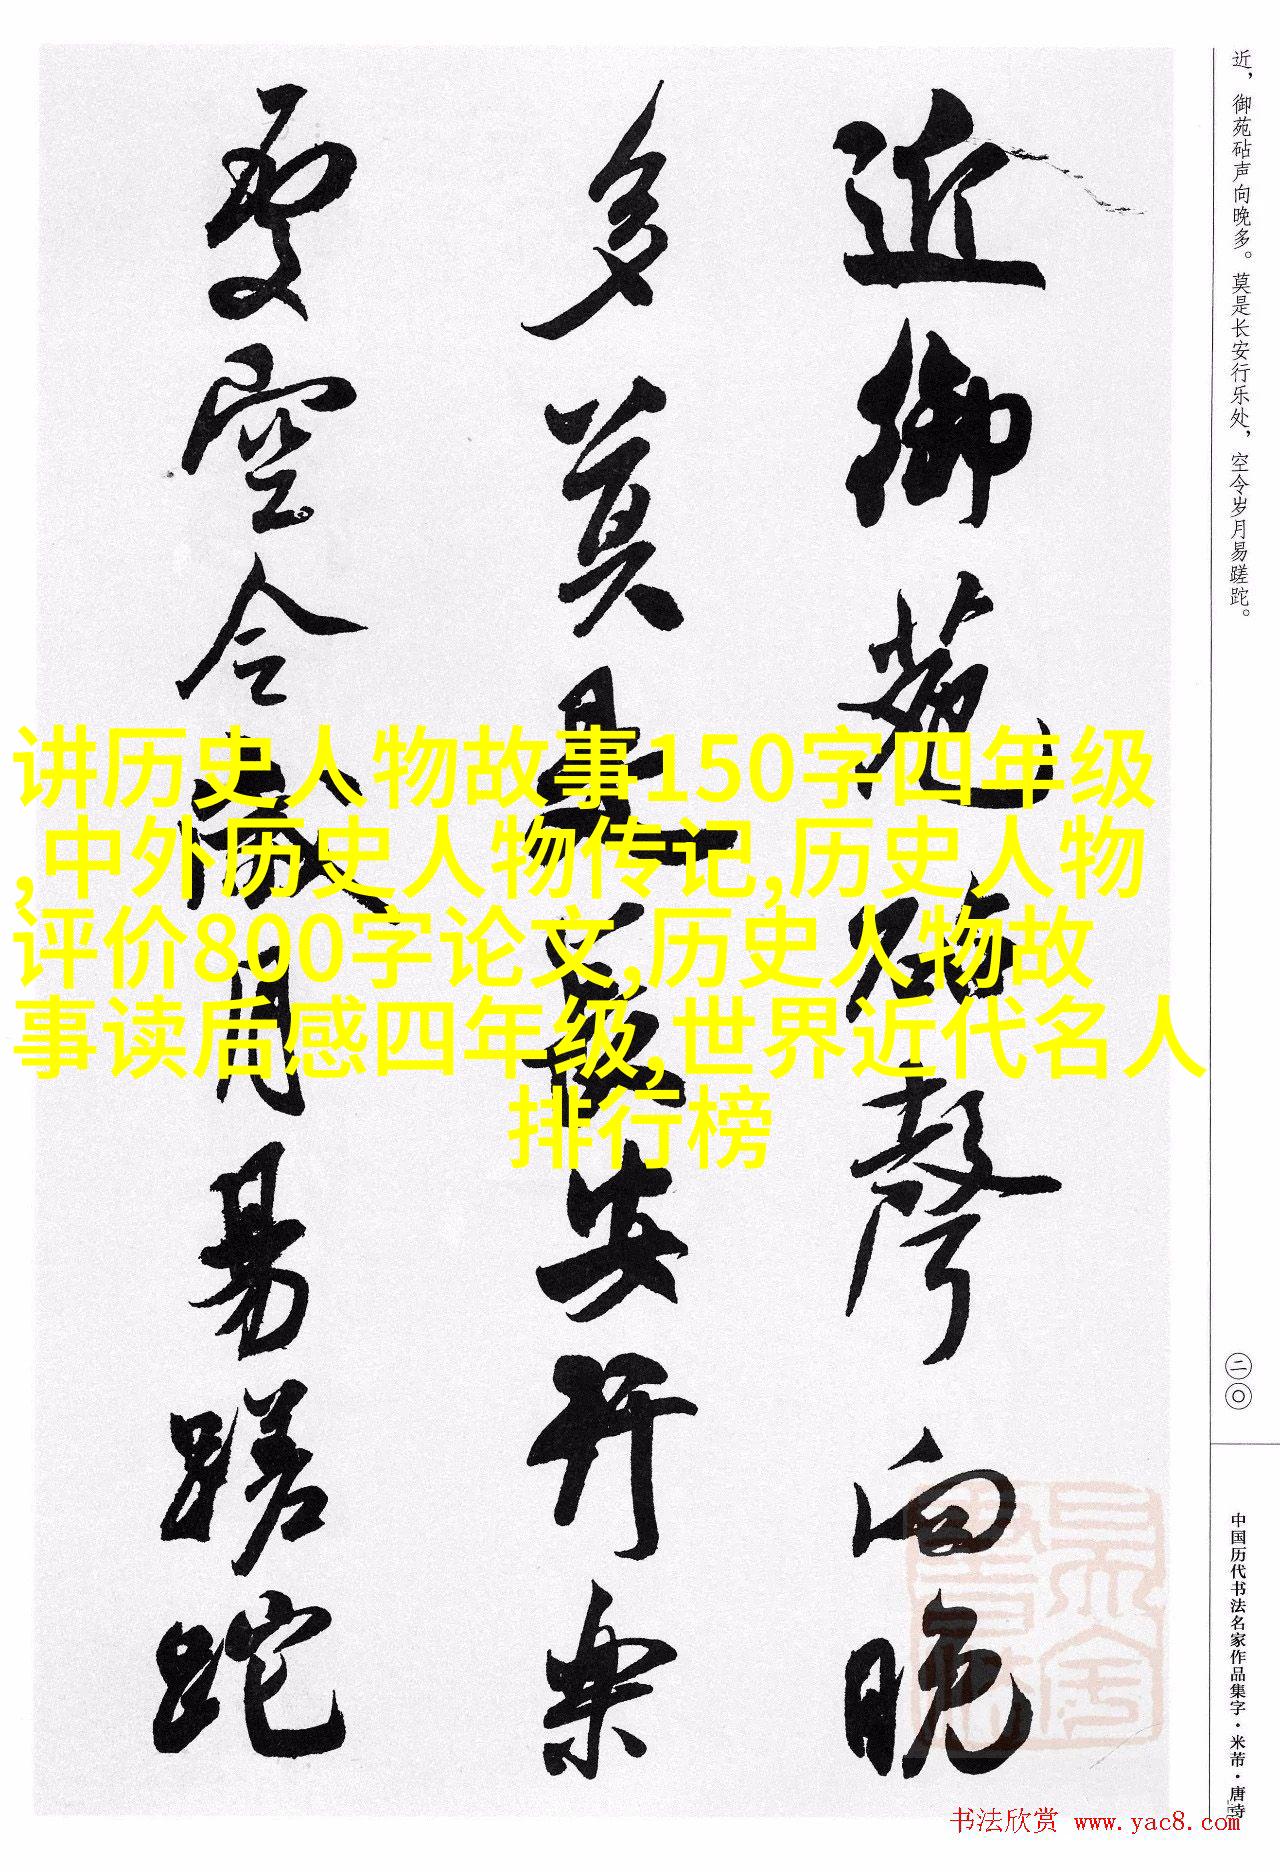 近，御苑砧声向晚多。莫是长安行乐处，空令岁月易蹉跎。
近御苑砧聲向晚
多莫是長安行樂
處空令歲月易蹉跎
讲历史人物故事150字四年级
,中外历史人物传记,历史人物
评价800字论文,历史人物故
事读后感四年级,世界近代名人
排行榜
二〇
中国历代书法名家作品集字·米芾·唐诗
书法欣赏 www.yac8.com